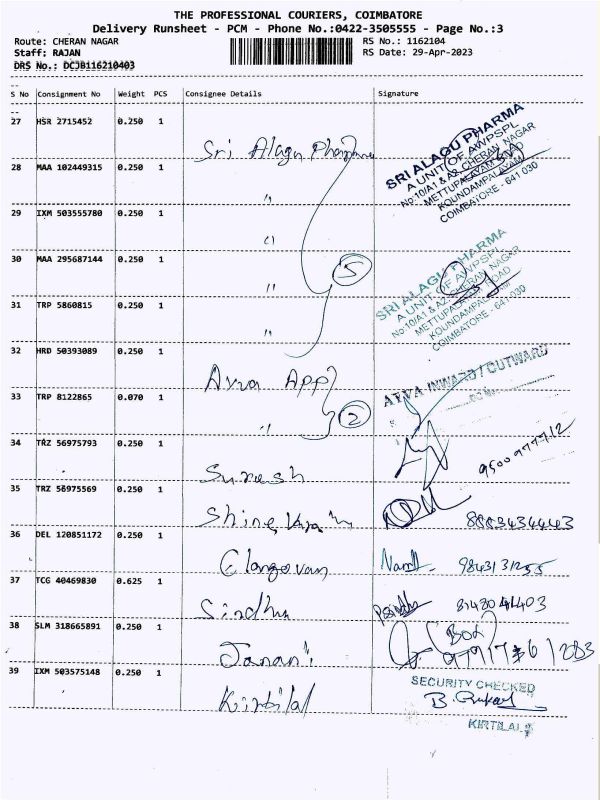 THE PROFESSIONAL COURIERS, COIMBATORE
Delivery Runsheet - PCM - Phone No.:0422-3505555 - Page No.:3
Route: CHERAN NAGAR
RS No.: 1162104
Staff: RAJAN
RS Date: 29-Apr-2023
DRS No.: DCJB116210403
S No Consignment No Weight PCS Consignee Details Signature
27 HSR 2715452 0.250 1
Sri Alagu Pharma
SRI ALAGU PHARMA
A UNIT OF AWPSPL
No:10/A1 & A2, CHERAN NAGAR
METTUPALAYAM ROAD
KOUNDAMPALAYAM
COIMBATORE - 641 030
28 MAA 102449315 0.250 1
"
29 IXM 503555780 0.250 1
"
30 MAA 295687144 0.250 1
"
5
SRI ALAGU PHARMA
A UNIT OF AWPSPL
No:10/A1 & A2, CHERAN NAGAR
METTUPALAYAM ROAD
KOUNDAMPALAYAM
COIMBATORE - 641 030
31 TRP 5860815 0.250 1
"
32 HRD 50393089 0.250 1
INWARD / OUTWARD
33 TRP 8122865 0.070 1
"
2
34 TRZ 56975793 0.250 1
Suresh
9500977712
35 TRZ 56975569 0.250 1
36 DEL 120851172 0.250 1
Elangovan
37 TCG 40469830 0.625 1
Sindhu
38 SLM 318665891 0.250 1
Janani
(Box)
39 IXM 503575148 0.250 1
Kirtilal
SECURITY CHECKED
KIRTILALS